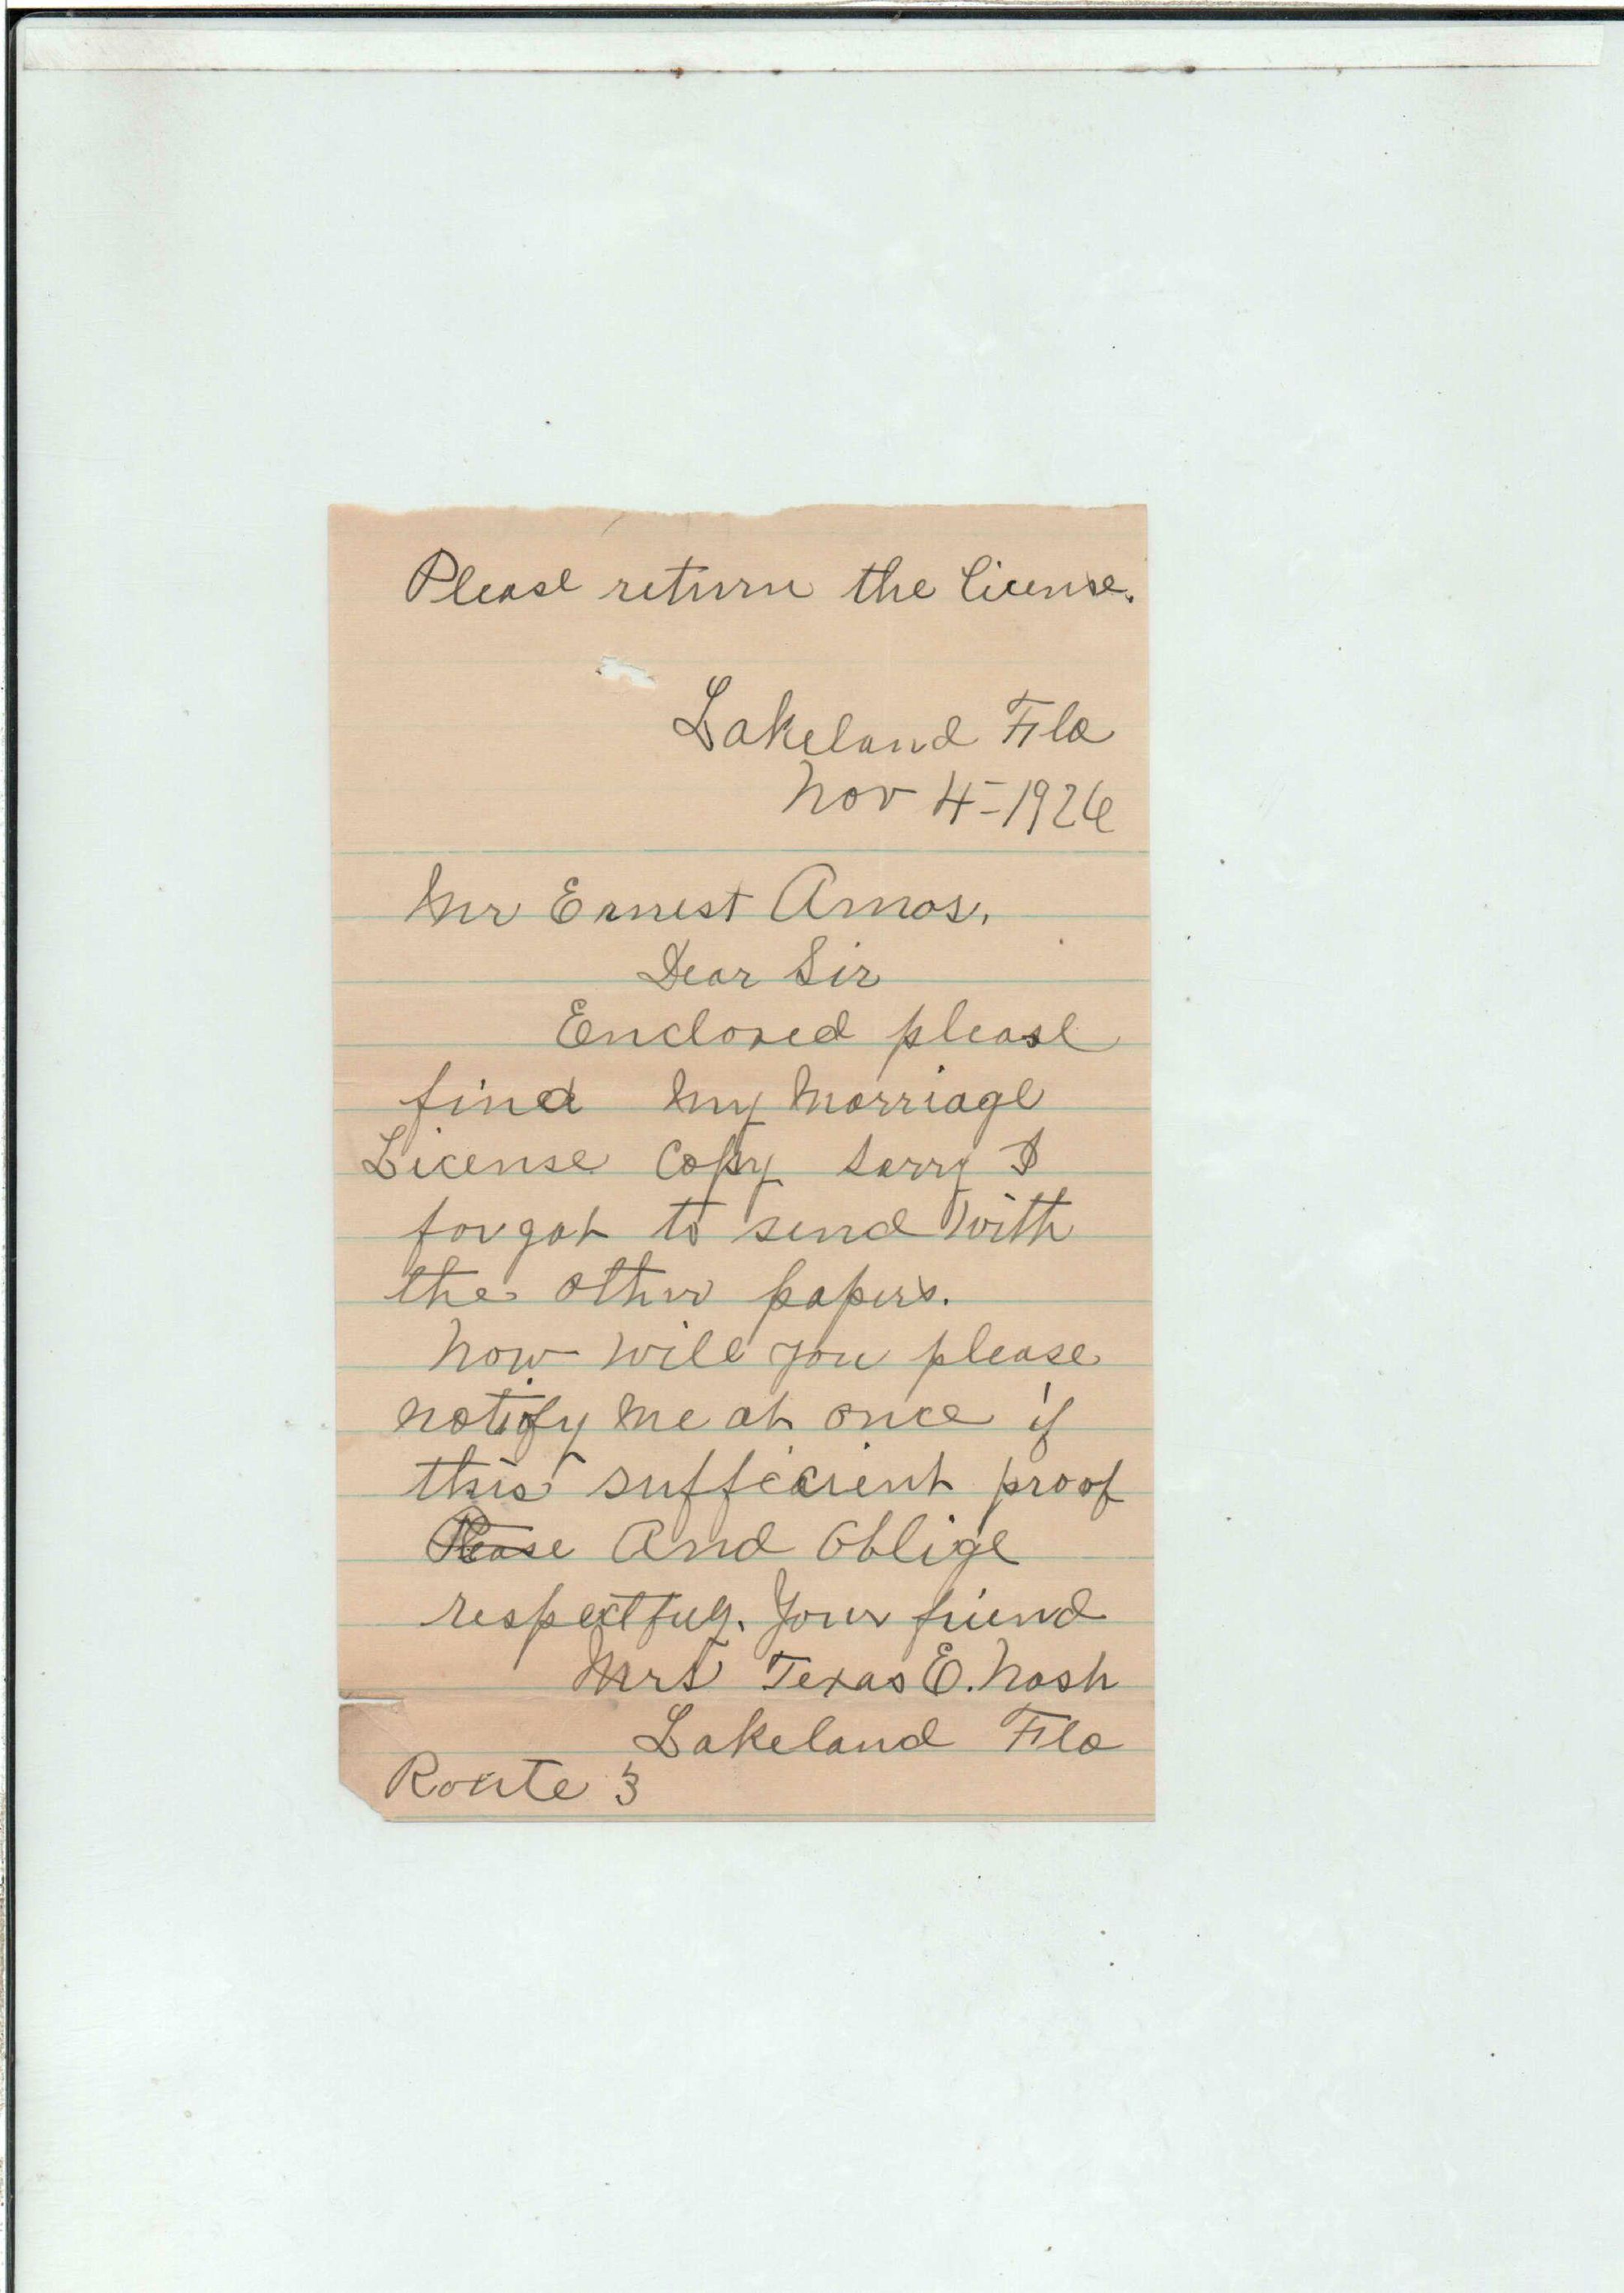 Please return the license.
Lakeland Fla
Nov 4-1926
Mr Ernest Amos.
Dear Sir
Enclosed please
find my marriage
License Copy sorry I
forgot to send with
the other papers.
Now will you please
notify me at once if
this sufficient proof
Please And Oblige
respectfuly. Your friend
Mrs Texas E. Nash
Lakeland Fla
Route 3